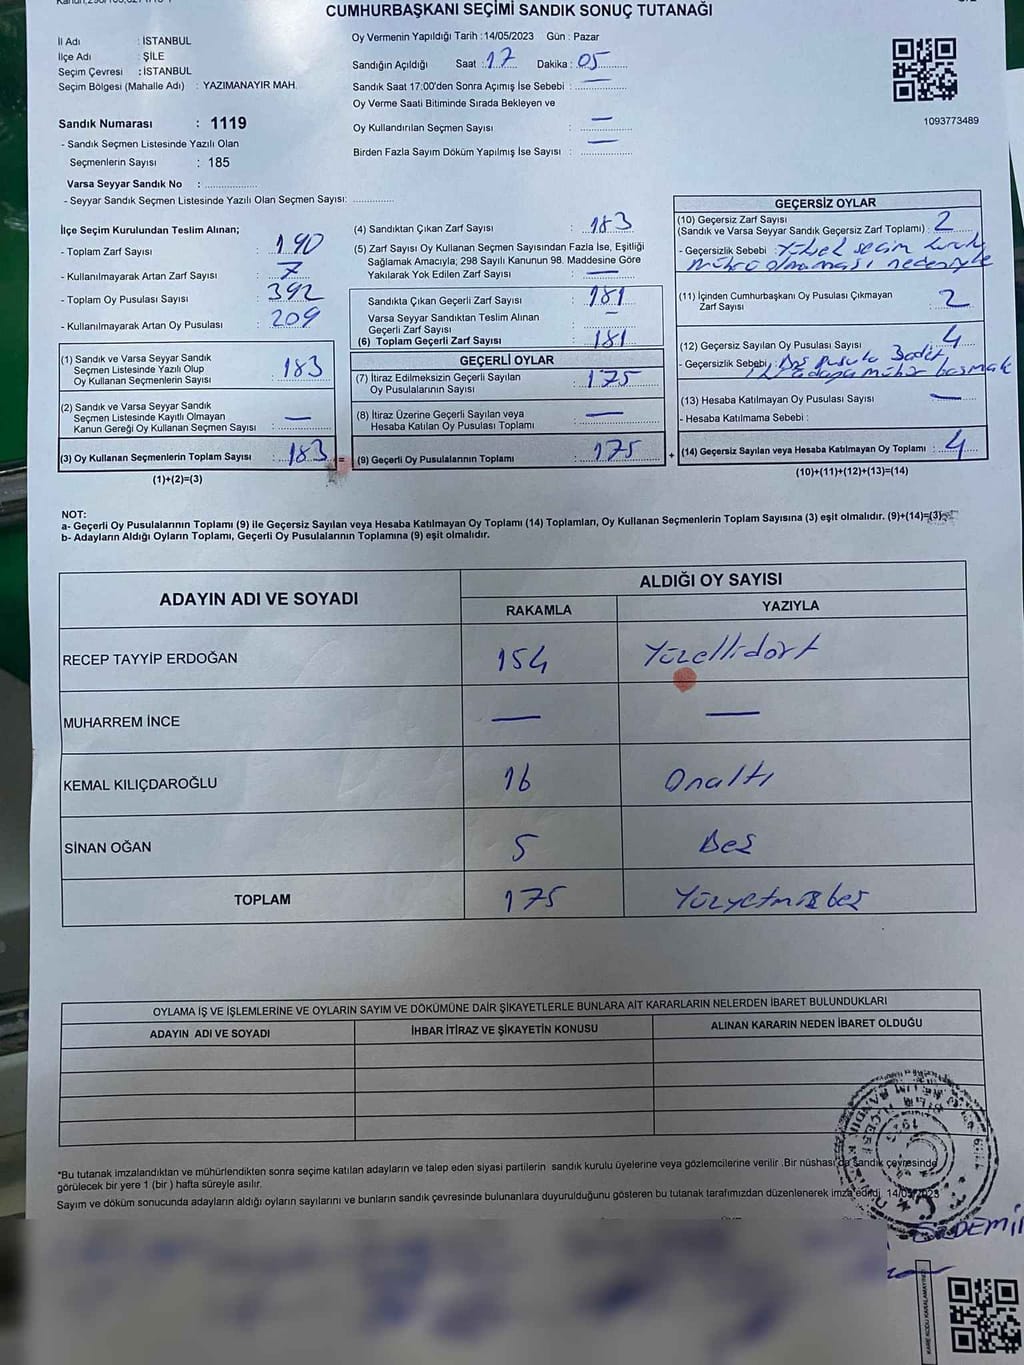 CUMHURBAŞKANI SEÇİMİ SANDIK SONUÇ TUTANAĞI
İl Adı : İSTANBUL
İlçe Adı : ŞİLE
Seçim Çevresi : İSTANBUL
Seçim Bölgesi (Mahalle Adı) : YAZIMANAYIR MAH.
Sandık Numarası : 1119
- Sandık Seçmen Listesinde Yazılı Olan
Seçmenlerin Sayısı : 185
Varsa Seyyar Sandık No :
- Seyyar Sandık Seçmen Listesinde Yazılı Olan Seçmen Sayısı:
Oy Vermenin Yapıldığı Tarih :14/05/2023 Gün : Pazar
Sandığın Açıldığı Saat : 17 Dakika : 05
Sandık Saat 17:00'den Sonra Açımış İse Sebebi : —
Oy Verme Saati Bitiminde Sırada Bekleyen ve
Oy Kullandırılan Seçmen Sayısı : —
Birden Fazla Sayım Döküm Yapılmış İse Sayısı : —
1093773489
İlçe Seçim Kurulundan Teslim Alınan;
- Toplam Zarf Sayısı : 190
- Kullanılmayarak Artan Zarf Sayısı : 7
- Toplam Oy Pusulası Sayısı : 392
- Kullanılmayarak Artan Oy Pusulası : 209
(1) Sandık ve Varsa Seyyar Sandık
Seçmen Listesinde Yazılı Olup
Oy Kullanan Seçmenlerin Sayısı : 183
(2) Sandık ve Varsa Seyyar Sandık
Seçmen Listesinde Kayıtlı Olmayan
Kanun Gereği Oy Kullanan Seçmen Sayısı : —
(3) Oy Kullanan Seçmenlerin Toplam Sayısı : 183
(1)+(2)=(3)
(4) Sandıktan Çıkan Zarf Sayısı : 183
(5) Zarf Sayısı Oy Kullanan Seçmen Sayısından Fazla İse, Eşitliği
Sağlamak Amacıyla; 298 Sayılı Kanunun 98. Maddesine Göre
Yakılarak Yok Edilen Zarf Sayısı : —
Sandıkta Çıkan Geçerli Zarf Sayısı : 181
Varsa Seyyar Sandıktan Teslim Alınan
Geçerli Zarf Sayısı : —
(6) Toplam Geçerli Zarf Sayısı : 181
GEÇERLİ OYLAR
(7) İtiraz Edilmeksizin Geçerli Sayılan
Oy Pusulasının Sayısı : 175
(8) İtiraz Üzerine Geçerli Sayılan veya
Hesaba Katılan Oy Pusulası Toplamı : —
= (9) Geçerli Oy Pusulalarının Toplamı : 175
GEÇERSİZ OYLAR
(10) Geçersiz Zarf Sayısı
(Sandık ve Varsa Seyyar Sandık Geçersiz Zarf Toplamı) : 2
- Geçersizlik Sebebi : Yüksek seçim kurulu
mührü olmaması nedeniyle
(11) İçinden Cumhurbaşkanı Oy Pusulası Çıkmayan
Zarf Sayısı : 2
(12) Geçersiz Sayılan Oy Pusulası Sayısı : 4
- Geçersizlik Sebebi : Boş pusula 3 adet
adaya mühür basmak
(13) Hesaba Katılmayan Oy Pusulası Sayısı : —
- Hesaba Katılmama Sebebi :
+ (14) Geçersiz Sayılan veya Hesaba Katılmayan Oy Toplamı : 4
(10)+(11)+(12)+(13)=(14)
NOT:
a- Geçerli Oy Pusulalarının Toplamı (9) ile Geçersiz Sayılan veya Hesaba Katılmayan Oy Toplamı (14) Toplamları, Oy Kullanan Seçmenlerin Toplam Sayısına (3) eşit olmalıdır. (9)+(14)=(3)
b- Adayların Aldığı Oyların Toplamı, Geçerli Oy Pusulalarının Toplamına (9) eşit olmalıdır.
ADAYIN ADI VE SOYADI
ALDIĞI OY SAYISI
RAKAMLA YAZIYLA
RECEP TAYYİP ERDOĞAN 154 Yüzellidört
MUHARREM İNCE — —
KEMAL KILIÇDAROĞLU 16 Onaltı
SİNAN OĞAN 5 Beş
TOPLAM 175 Yüzyetmişbeş
OYLAMA İŞ VE İŞLEMLERİNE VE OYLARIN SAYIM VE DÖKÜMÜNE DAİR ŞİKAYETLERLE BUNLARA AİT KARARLARIN NELERDEN İBARET BULUNDUKLARI
ADAYIN ADI VE SOYADI İHBAR İTİRAZ VE ŞİKAYETİN KONUSU ALINAN KARARIN NEDEN İBARET OLDUĞU
*Bu tutanak imzalandıktan ve mühürlendikten sonra seçime katılan adayların ve talep eden siyasi partilerin sandık kurulu üyelerine veya gözlemcilerine verilir .Bir nüshası da sandık çevresinde
görülecek bir yere 1 (bir ) hafta süreyle asılır.
Sayım ve döküm sonucunda adayların aldığı oyların sayılarını ve bunların sandık çevresinde bulunanlara duyurulduğunu gösteren bu tutanak tarafımızdan düzenlenerek imza edildi. 14/05/2023